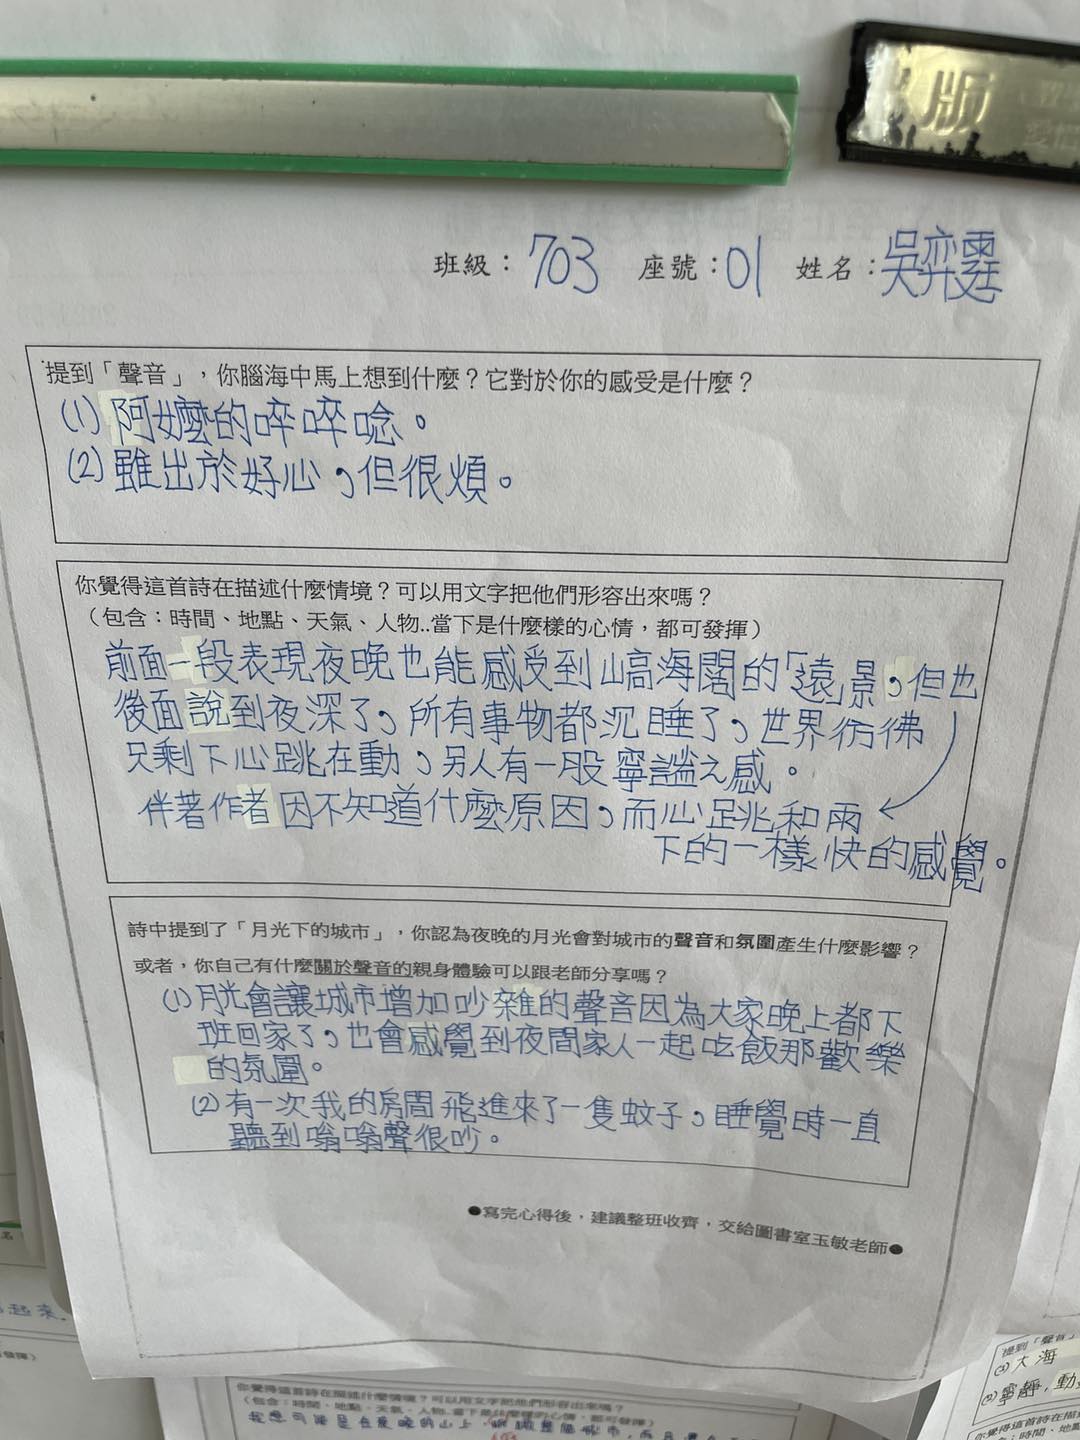 版
班級：703 座號：01 姓名：吳弈霆
提到「聲音」，你腦海中馬上想到什麼？它對於你的感受是什麼？
(1) 阿嬤的啐啐唸。
(2) 雖出於好心，但很煩。
你覺得這首詩在描述什麼情境？可以用文字把他們形容出來嗎？
（包含：時間、地點、天氣、人物..當下是什麼樣的心情，都可發揮）
前面一段表現夜晚也能感受到山高海闊的「遠」景，但也
後面說到夜深了，所有事物都沉睡了，世界彷彿
只剩下心跳在動，另人有一股寧謐之感。
伴著作者因不知道什麼原因，而心跳和雨
下的一樣快的感覺。
詩中提到了「月光下的城市」，你認為夜晚的月光會對城市的聲音和氛圍產生什麼影響？
或者，你自己有什麼關於聲音的親身體驗可以跟老師分享嗎？
(1) 月光會讓城市增加吵雜的聲音因為大家晚上都下
班回家了，也會感覺到夜間家人一起吃飯那歡樂
的氛圍。
(2) 有一次我的房間飛進來了一隻蚊子，睡覺時一直
聽到嗡嗡聲很吵。
●寫完心得後，建議整班收齊，交給圖書室玉敏老師●
起來.
提到「聲音
(1) 大海
(2) 寧靜，動
你覺得這首詩在描
含：時間、地點
你覺得這首詩在描述什麼情境？可以用文字把他們形容出來嗎？
（包含：時間、地點、天氣、人物..當下是什麼樣的心情，都可發揮）